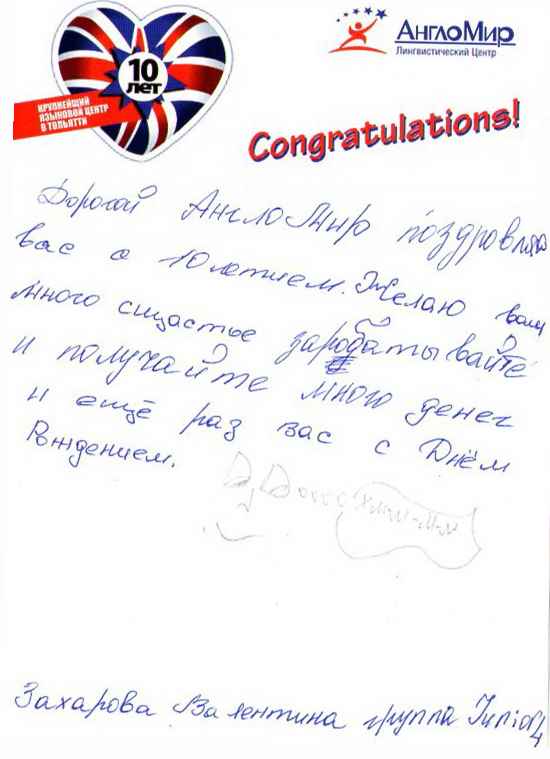 10
ЛЕТ
КРУПНЕЙШИЙ
ЯЗЫКОВОЙ ЦЕНТР
В ТОЛЬЯТТИ
АнглоМир
Лингвистический Центр
Congratulations!
Дорогой АнглоМир поздровляю
вас с 10 летием. Желаю вам
много сщастье заробатывайте
и получайте много денег
и ещё раз вас с Днём
Рождением.
Захарова Валентина группа Junior 4